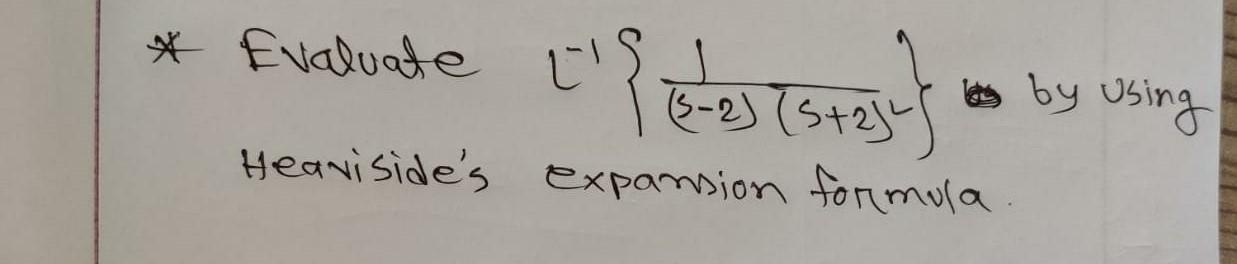 * Evaluate L⁻¹{1/((s-2)(s+2)²)} by using
Heaviside's expansion formula.